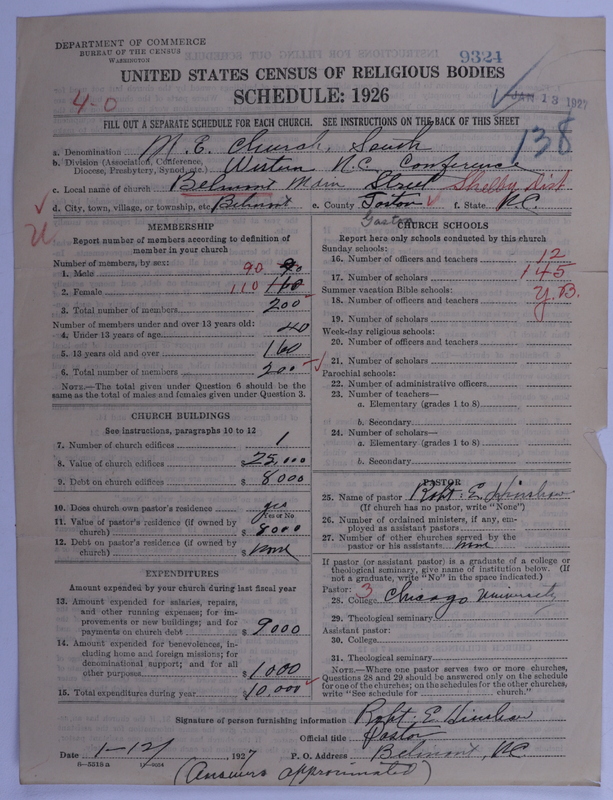 DEPARTMENT OF COMMERCE
BUREAU OF THE CENSUS
WASHINGTON
9324
UNITED STATES CENSUS OF RELIGIOUS BODIES
SCHEDULE: 1926
4-0
JAN 13 1927
FILL OUT A SEPARATE SCHEDULE FOR EACH CHURCH. SEE INSTRUCTIONS ON THE BACK OF THIS SHEET
138
a. Denomination M. E. Church, South
b. Division (Association, Conference, Diocese, Presbytery, Synod, etc.) Western N.C. Conference
c. Local name of church Belmont Main Street Shelby Dist.
d. City, town, village, or township, etc. Belmont e. County Gaston f. State N.C.
Gaston
MEMBERSHIP
Report number of members according to definition of
member in your church
Number of members, by sex:
1. Male 90 90
2. Female 110 110
3. Total number of members 200
Number of members under and over 13 years old:
4. Under 13 years of age 40
5. 13 years old and over 160
6. Total number of members 200
NOTE.—The total given under Question 6 should be the
same as the total of males and females given under Question 3.
CHURCH BUILDINGS
See instructions, paragraphs 10 to 12
7. Number of church edifices 1
8. Value of church edifices $ 25,000
9. Debt on church edifices $ 8000
10. Does church own pastor's residence? yes
Yes or No
11. Value of pastor's residence (if owned by
church) $ 8000
12. Debt on pastor's residence (if owned by
church) $ none
EXPENDITURES
Amount expended by church during last fiscal year
13. Amount expended for salaries, repairs,
and other running expenses; for im-
provements or new buildings; and for
payments on church debt $ 9000
14. Amount expended for benevolences, in-
cluding home and foreign missions; for
denominational support; and for all
other purposes $ 1000
15. Total expenditures during year $ 10,000
CHURCH SCHOOLS
Report here only schools conducted by this church
Sunday schools:
16. Number of officers and teachers 12
17. Number of scholars 145
Summer vacation Bible schools: Y.B.
18. Number of officers and teachers
19. Number of scholars
Week-day religious schools:
20. Number of officers and teachers
21. Number of scholars
Parochial schools:
22. Number of administrative officers
23. Number of teachers—
a. Elementary (grades 1 to 8)
b. Secondary
24. Number of scholars—
a. Elementary (grades 1 to 8)
b. Secondary
PASTOR
25. Name of pastor Robt. E. Hinshaw
(If church has no pastor, write "None")
26. Number of ordained ministers, if any, em-
ployed as assistant pastors
27. Number of other churches served by the
pastor or his assistants none
If pastor (or assistant pastor) is a graduate of a college or
theological seminary, give name of institution below. (If
not a graduate, write "No" in the space indicated.)
Pastor: 3
28. College Chicago University
29. Theological seminary
Assistant pastor:
30. College
31. Theological seminary
NOTE.—Where one pastor serves two or more churches,
Questions 28 and 29 should be answered only on the schedule
for one of the churches; on the schedules for the other churches,
write "See schedule for church."
Signature of person furnishing information Robt. E. Hinshaw
Official title Pastor
Date 1-12 1927 P. O. Address Belmont, N.C.
8—5518a
(Answers approximated)